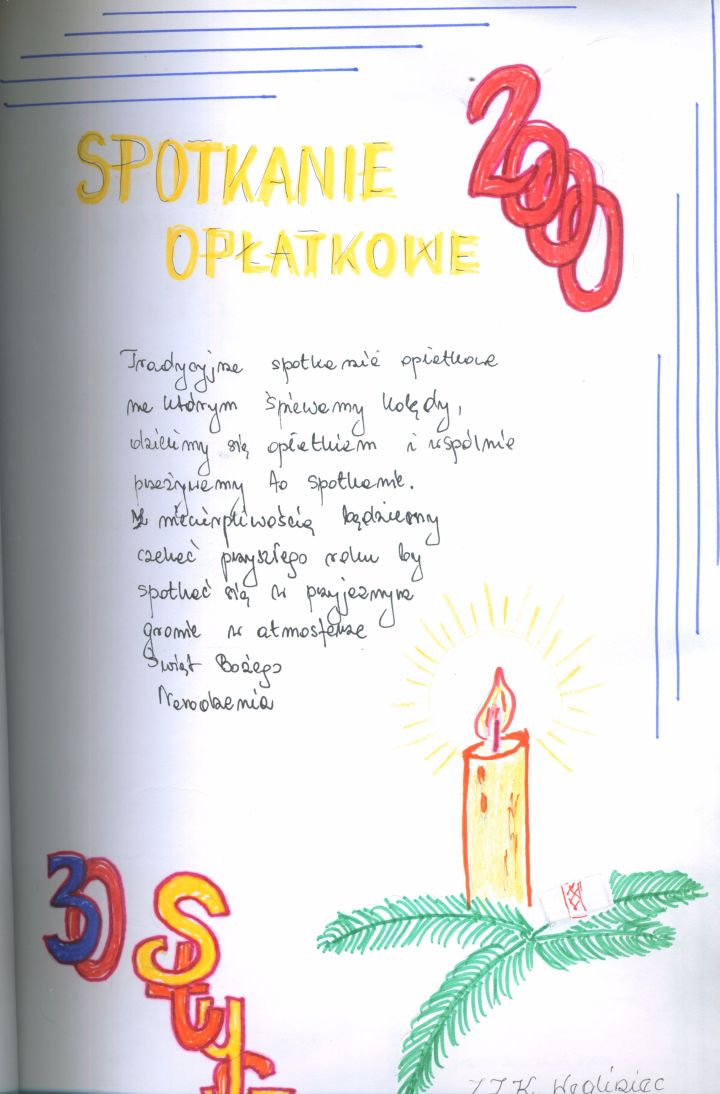 2000
SPOTKANIE
OPŁATKOWE
Tradycyjne spotkanie opłatkowe
na którym śpiewamy kolędy,
dzielimy się opłatkiem i wspólnie
przeżywamy to spotkanie.
Z niecierpliwością będziemy
czekać przyszłego roku by
spotkać się w przyjaznym
gronie w atmosferze
Świąt Bożego
Narodzenia
30
Sty
Węgliniec